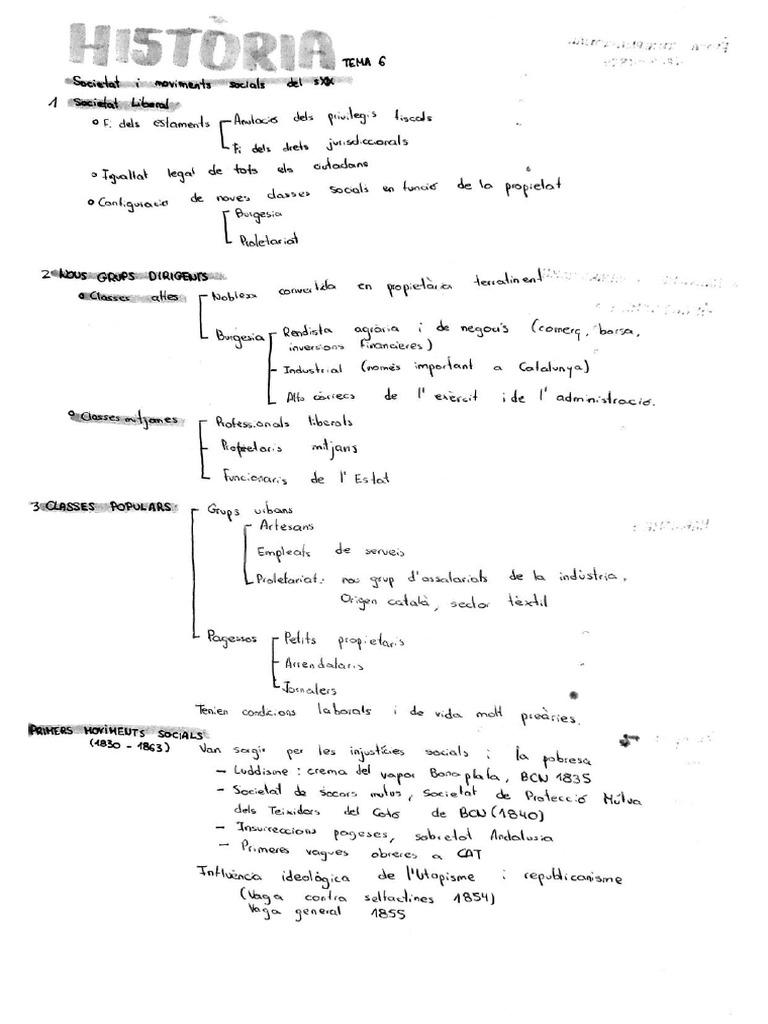 HISTÒRIA TEMA 6
Societat i moviments socials del sXIX
1 Societat Liberal
F. dels estaments
Anulació dels privilegis fiscals
Fi dels drets jurisdiccionals
Igualtat legal de tots els ciutadans
Configuració de noves classes socials en funció de la propietat
Burgesia
Proletariat
2 NOUS GRUPS DIRIGENTS
Classes altes
Noblesa convertida en propietària terratinent
Burgesia
Rendista agrària i de negocis (comerç, borsa,
inversions financieres)
Industrial (només important a Catalunya)
Alts càrrecs de l'exèrcit i de l'administració.
Classes mitjanes
Professionals liberals
Propietaris mitjans
Funcionaris de l'Estat
3 CLASSES POPULARS
Grups urbans
Artesans
Empleats de serveis
Proletariat: nou grup d'assalariats de la indústria.
Origen català, sector tèxtil
Pagesos
Petits propietaris
Arrendataris
Jornalers
Tenien condicions laborals i de vida molt precàries.
PRIMERS MOVIMENTS SOCIALS
(1830 - 1863)
Van sorgir per les injustícies socials i la pobresa
- Luddisme: crema del vapor Bonaplata, BCN 1835
- Societat de socors mutus, Societat de Protecció Mútua
dels Teixidors del Cotó de BCN (1840)
- Insurreccions pageses, sobretot Andalusia
- Primeres vagues obreres a CAT
Influència ideològica de l'Utopisme i republicanisme
(Vaga contra selfactines 1854)
Vaga general 1855